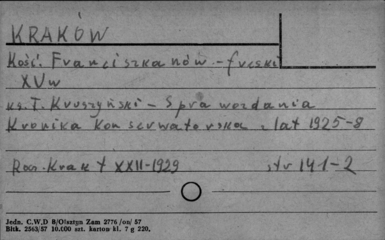 KRAKÓW
Kość. Franciszkanów - freski
XVw
ks. T. Kruszyński - Sprawozdania
Kronika Konserwatorska z lat 1925-8
Rocz. Krak t XXII-1929 str 141-2
Jedn. C.W.D 8/Olsztyn Zam 2776 /on/ 57
Bltk. 2563/57 10.000 szt. karton kl. 7 g 220.